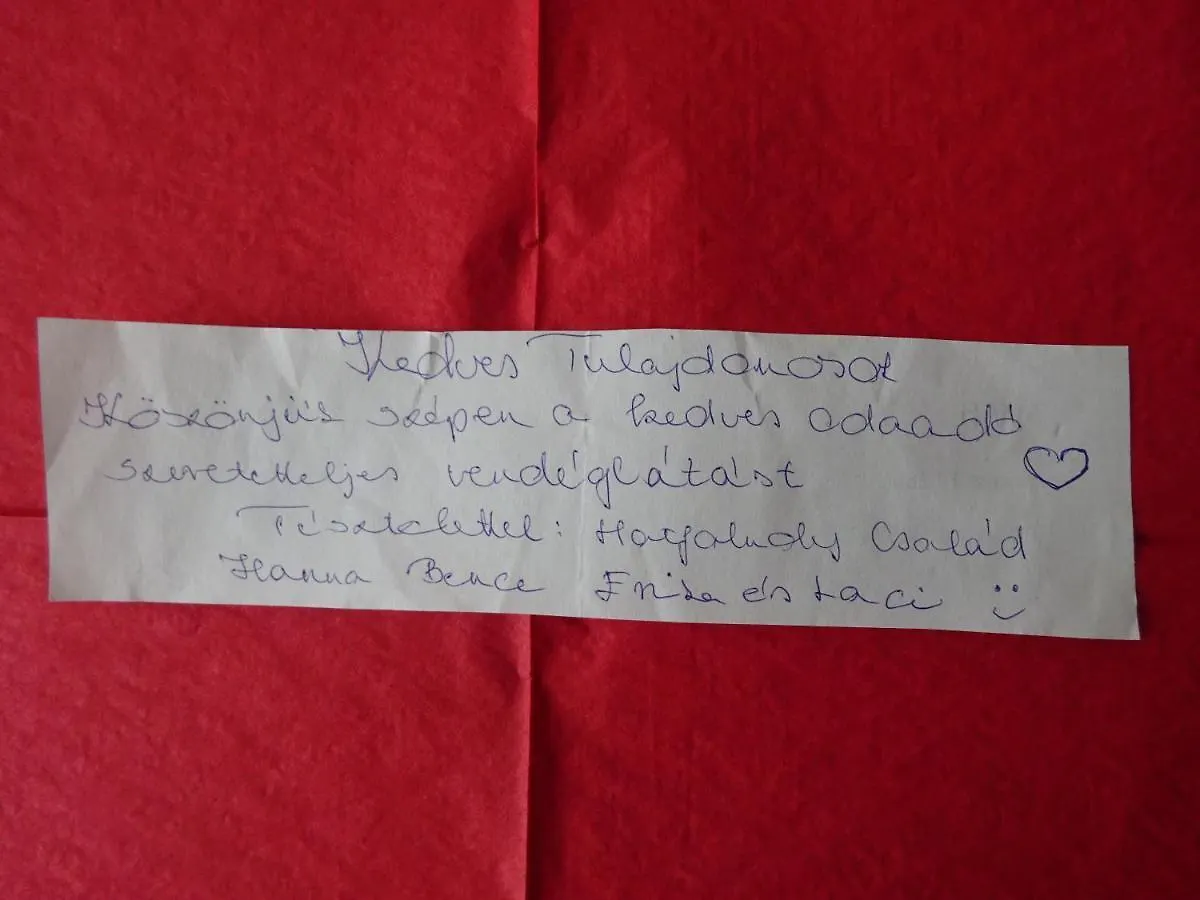 Kedves Tulajdonosok
Köszönjük szépen a kedves odaadó
szeretetteljes vendéglátást
Tisztelettel: Család
Hanna Bence és Laci